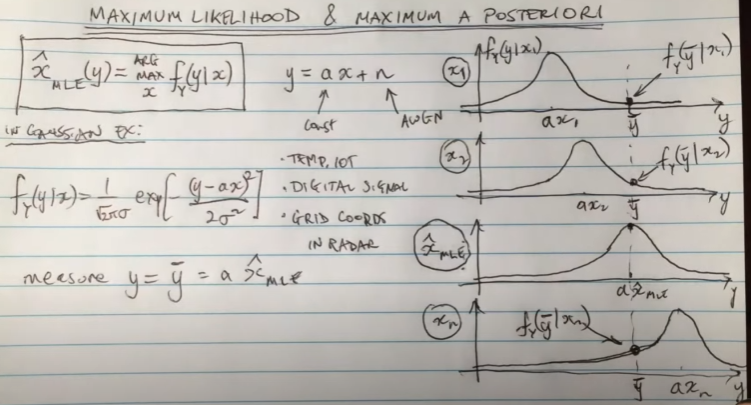 MAXIMUM LIKELIHOOD & MAXIMUM A POSTERIORI
x̂_MLE(y) = ARG MAX_x f_Y(y|x)
y = ax + n
const
AWGN
IN GAUSSIAN EX:
f_Y(y|x) = 1/(√2π σ) exp[-(y-ax)²/2σ²]
• TEMP, IOT
• DIGITAL SIGNAL
• GRID COORDS
IN RADAR
measure y = ȳ = a x̂_MLE
x₁
f_Y(y|x₁)
f_Y(ȳ|x₁)
ax₁
ȳ
y
x₂
f_Y(ȳ|x₂)
ax₂
ȳ
y
x̂_MLE
a x̂_MLE
y
xₙ
f_Y(ȳ|xₙ)
ȳ
axₙ
y